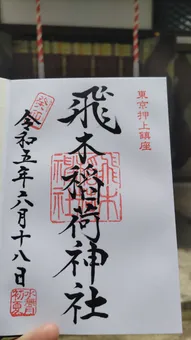 東京押上鎮座
飛木稲荷神社
令和五年六月十八日